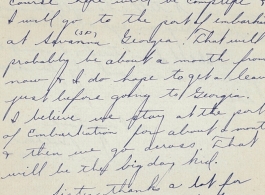 course hope will be complete &
I will go to the port of embarkati
at Savanna (so) Georgia. That will
probably be about a month from
now & I do hope to get a leav
just before going to Georgia.
I believe we stay at the port
of Embarkation for about a mont
& then we go across. That
will be the big day kid.
thanks a lot for